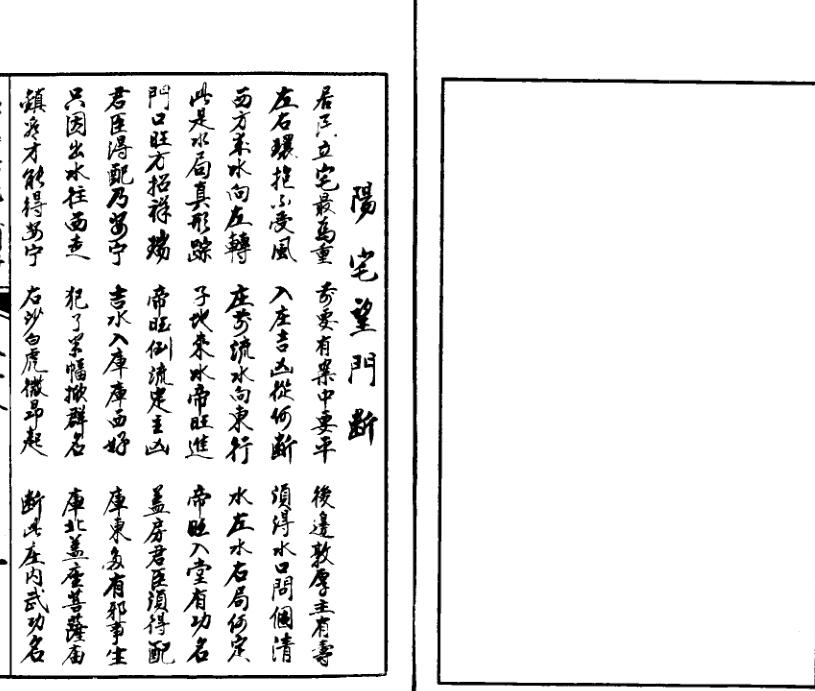 陽宅望門断
居民立宅最為重 前要有案中要平 後邊敦厚主有壽
左右環抱不受風 入庄吉凶從何断 須得水口問個清
西方来水向左轉 庄前流水向東行 水左水右局何定
此是水局真形踪 子地来水帝旺進 帝旺入堂有功名
門口旺方招祥瑞 帝旺倒流定主凶 蓋房君臣須得配
君臣得配乃安宁 吉水入庫庫西好 庫東多有邪事生
只因出水往西走 犯了 群名 庫北蓋座菩薩庙
鎮 才能得安宁 右沙白虎微昂起 断此庄内武功名